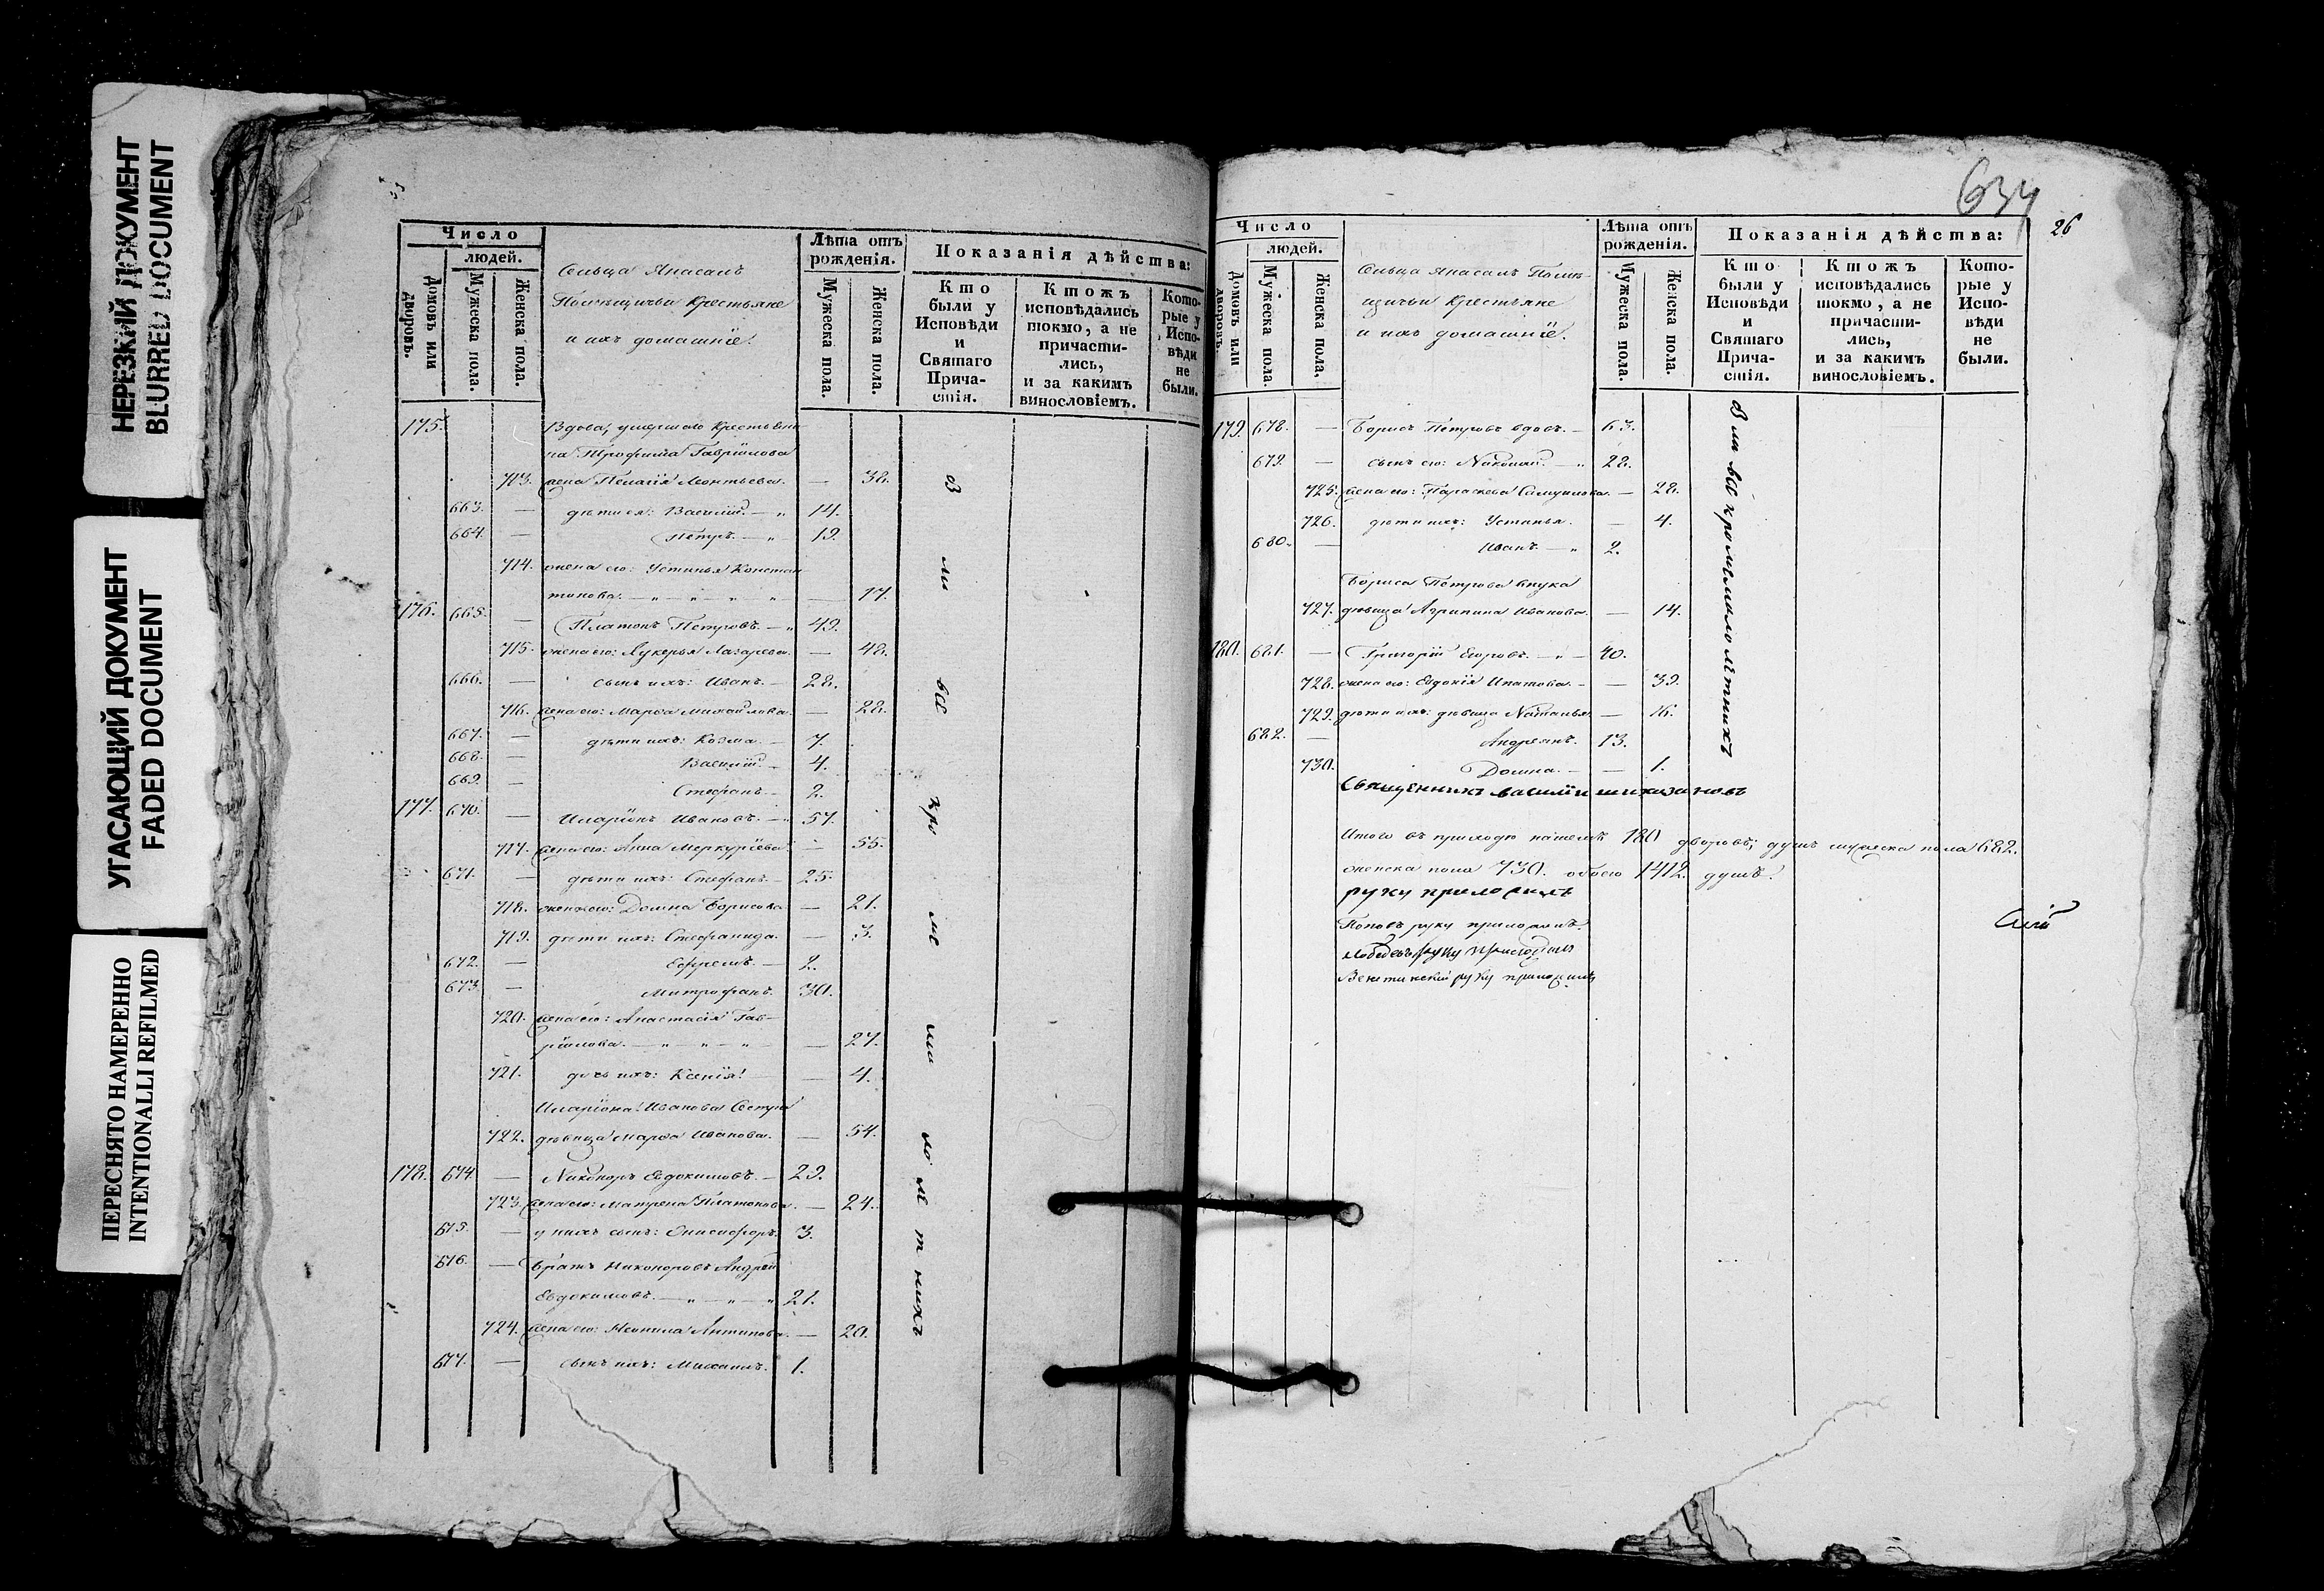 НЕРЕЗКИЙ ДОКУМЕНТ
BLURRED DOCUMENT
УГАСАЮЩИЙ ДОКУМЕНТ
FADED DOCUMENT
ПЕРЕСНЯТО НАМЕРЕННО
INTENTIONALLI REFILMED
Число
людей.
Домовъ или дворовъ.
Мужеска пола.
Женска пола.
Сельца
Крестьяне
и ихъ домашніе.
Лѣта отъ рожденія.
Мужеска пола.
Женска пола.
Показанія дѣйства:
Кто были у Исповѣди и Святаго Причастія.
Ктожъ исповѣдались токмо, а не причастились, и за какимъ винословіемъ.
Которые у Исповѣди не были.
175. Вдова, умершаго Крестьяни-
на Трофима Гаврілова
713. жена Пелагія Леонтьева. — 38.
663. — дѣти ея: Василій. — 14.
664. — Петръ. — 19.
714. жена его: Устинья Констан
тинова. — 17.
176. 665. — Платонъ Петровъ. — 49.
715. жена его: Лукерья Лазарева. — 48.
666. — сынъ ихъ: Иванъ. — 28.
716. жена его: Марѳа Михайлова. — 28.
667. — дѣти ихъ: Козма. — 7.
668. — Василій. — 4.
669. — Стефанъ. — 2.
177. 670. — Иларіонъ Ивановъ. — 57.
717. жена его: Анна Меркуріева. — 55.
671. — дѣти ихъ: Стефанъ. — 25.
718. жена его: Домна Борисова — 21.
719. дѣти ихъ: Стефанида. — 3.
672. — Ефремъ. — 2.
673. — Митрофанъ. 30.
720. жена его: Анастасія Гав-
рілова. — 27.
721. дочь ихъ: Ксенія — 4.
Иларіона Иванова Сестра
722. дѣвица Марѳа Иванова. — 54.
178. 674. — Никоноръ Евдокимовъ. — 29.
723. жена его: Матрена Платонова. — 24.
675. — у нихъ сынъ: Онисифоръ. 3.
676. — Братъ Никоноровъ Андрей
Евдокимовъ. — 21.
724. жена его: Неонила Антипова. — 20.
677. — сынъ ихъ: Михаилъ. 1.
Были всѣ кромѣ малолѣтнихъ
634
26
Число
людей.
Домовъ или дворовъ.
Мужеска пола.
Женска пола.
Сельца Помѣ-
щичьи Крестьяне
и ихъ домашніе.
Лѣта отъ рожденія.
Мужеска пола.
Женска пола.
Показанія дѣйства:
Кто были у Исповѣди и Святаго Причастія.
Ктожъ исповѣдались токмо, а не причастились, и за какимъ винословіемъ.
Которые у Исповѣди не были.
179. 678. — Борисъ Петровъ вдовъ. — 63.
679. — сынъ его: Николай. — 28.
725. жена его: Параскева Самуилова. — 28.
726. дѣти ихъ: Устинья. — 4.
680. — Иванъ. — 2.
Бориса Петрова внука
727. дѣвица Агрипина Иванова. — 14.
180. 681. — Григорій Егоровъ. — 40.
728. жена его: Евдокія Ипатова. — 39.
729. дѣти ихъ: дѣвица Наталья. — 16.
682. — Андреянъ. 13.
730. Домна. — 1.
всѣ кромѣ малолѣтнихъ
Священникъ Василій
Итого въ приходѣ нашемъ 180 дворовъ; душъ мужеска пола 682.
женска пола 730. обоего 1412. душъ.
руку приложилъ
Поповъ руку приложилъ.
Лебедевъ руку приложилъ
руку приложилъ